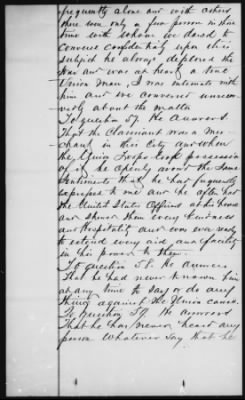 frequently alone and with others
there were only a few person in those
time with whom we dared to
converse confidentially upon this
subject he always deplored the
War and was at heart a true
Union man, I was intimate with
him and we conversed
about the matter
To question 57. He Answers
That the Claimant was a Mer-
chant in this City and when
the Union Troops took possession
of it he openly avowed the same
Sentiments that he had frequently
expressed to me and he often had
the United States Officers at his house
and shown them every kindness
and Hospitality and was ever ready
to extend every aid and facility
in his power to them.
To question 58. He answers
That he had never known him
at any time to say or do any
thing against the Union cause.
To question 59. He answered
That he has never heard any
person whatever say that he